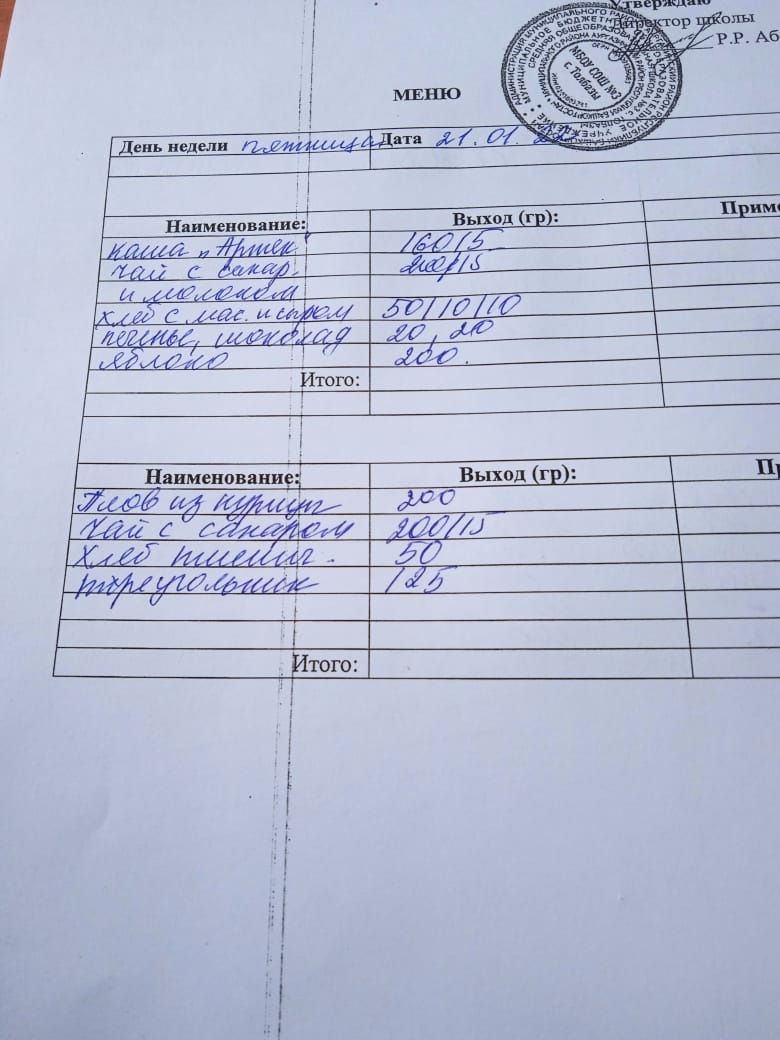 Утверждаю
Директор школы
Р.Р. Аб
МБОУ СОШ №3
с. Толбазы
МЕНЮ
День недели пятница Дата 21.01.22
Наименование: Выход (гр): Приме
каша „Артек" 160/5
чай с сахар. 200/15
и молоком
хлеб с мас. и сыром 50/10/10
печенье, шоколад 20, 20
яблоко 200.
Итого:
Наименование: Выход (гр): Пр
Плов из курицы 200
Чай с сахаром 200/15
Хлеб пшенич. 50
треугольник 125
Итого: